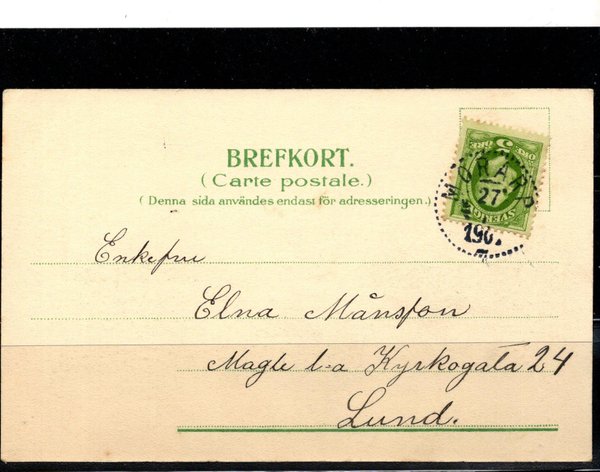 BREFKORT.
(Carte postale.)
(Denna sida användes endast för adresseringen.)
5 ÖRE
SVERIGE
MÖRARP
27
190
Enkefru
Elna Månsson
Magle l-a Kyrkogata 24
Lund.